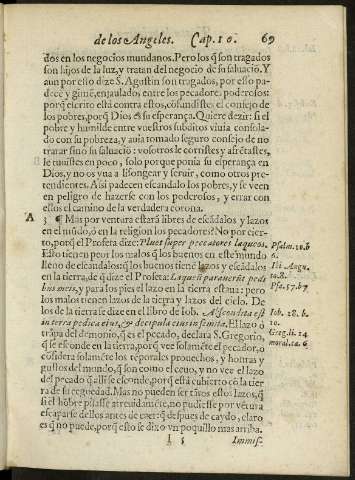 de los Angeles. Cap. 10. 69
dos en los negocios mundanos. Pero los q̃ son tragados
son hijos de la luz, y tratan del negocio de su saluacio. Y
aun por esso dize S. Agustin son tragados, por esso pa-
decẽ y gimẽ, enjaulados entre los pecadores poderosos:
porq̃ escrito está contra estos, cõfundistes el consejo de
los pobres, porq̃ Dios es su esperança. Quiere dezir: si el
pobre y humilde entre vuestros subditos viuia consola-
do con su pobreza, y auia tomado seguro consejo de no
tratar sino su saluaciõ: vosotros le corristes y afrẽtastes,
le tuuistes en poco, solo por que ponia su esperança en
Dios, y no os yua a lisongear y seruir, como otros pre-
tendientes. Assi padecen escandalo los pobres, y se veen
en peligro de hazerse con los poderosos, y errar con
ellos el camino de la verdadera corona.
A 3 ¶ Mas por ventura estará libres de escãdalos y lazos
en el mũdo, ó en la religion los pecadores? No por cier-
to, porq̃ el Profeta dize: Pluet super peccatores laqueos. Psalm. 10. b
Esto tienen peor los malos q̃ los buenos en este mundo 6
lleno de escãdalos: q̃ los buenos tienẽ lazos y escãdalos Ibi Augu.
en la tierra, de q̃ dize el Profeta: Laqueũ parauerũt pedi to. 8.
bus meis, y para los pies el lazo en la tierra estaua: pero Psa. 57. b 7
los malos tienen lazos de la tierra y lazos del cielo. De
los de la tierra se dize en el libro de Iob. Abscondita est Iob. 18. b.
in terra pedica eius, & decipula eius in semita. El lazo ó 10.
trãpa del demonio, q̃ es el pecado, declara S. Gregorio, Greg. li. 14
q̃ se esconde en la tierra, porq̃ vee solamẽte el pecador, o moral. ca. 6
cõsidera solamẽte los tẽporales prouechos, y honras y
gustos del mundo, q̃ son como el ceuo, y no vee el lazo
del pecado q̃ alli se esconde, porq̃ está cubierto cõ la tier
ra de su ceguedad. Mas no pueden ser viuos estos lazos, q̃
si el hõbre pisasse atreuidamẽte, no pudiesse por vẽtura
escaparse dellos antes de caer: q̃ despues de caydo, claro
es que no puede, porq̃ esto se dixo vn poquillo mas arriba.
I 5 Immis.